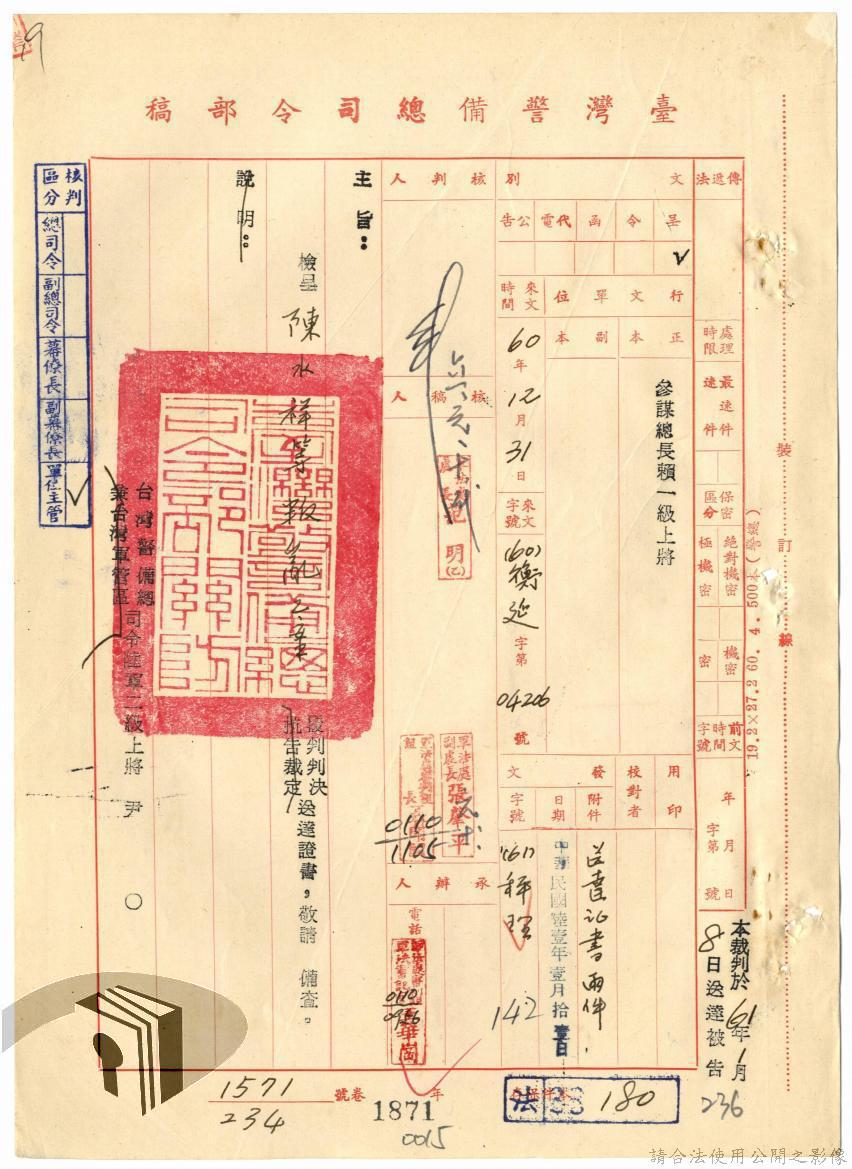 臺灣警備總司令部稿
傳遞法
處理時限
最速件
速件
保密區分
絕對機密
極機密
機密
密
前文時間字號
年月日
字第號
本裁判於61年1月
8日送達被告
236
裝訂線
19.2×27.2 60. 4. 500本(警總)
文別
呈
令
函
代電
公告
行文單位
正本
副本
參謀總長賴一級上將
來文時間
60年12月31日
來文字號
(60)衡
字第
04206
號
用印
校對者
發文
附件
日期
字號
送達証書兩件
中華民國陸壹年壹月拾壹日
(61)
理
142
核判人
核稿人
明(乙)
軍法處副處長張
平
0110
1105
承辦人
電話
0110
0956
主旨：
檢呈陳水祥等叛亂乙案
裁判判決
抗告裁定
送達證書，敬請 備查。
說明：
台灣警備總
兼台灣軍管區
司令陸軍二級上將 尹 ○
核判區分
總司令
副總司令
幕僚長
副幕僚長
單位主管
1571
234
卷號
年
1871
0015
法
180
請合法使用公開之影像